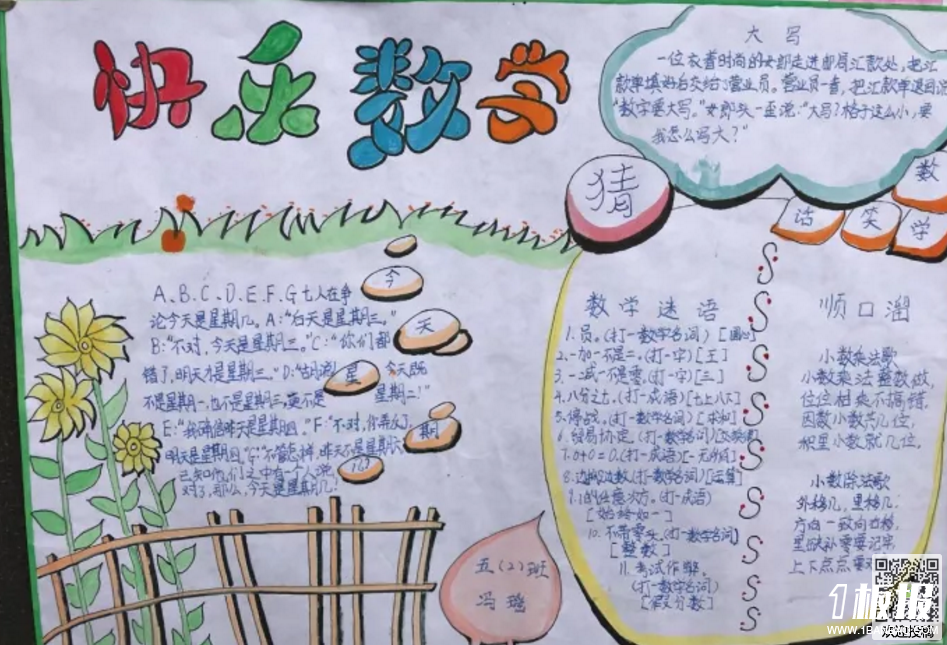 快乐数学
大写
一位衣着时尚的女郎走进邮局汇款处，把汇
款单填好后交给了营业员。营业员一看，把汇款单退回说
"数字要大写。"女郎头一歪说："大写？格子这么小，要
我怎么写大？"
猜
数
学
笑
话
今
天
星
期
几?
A、B、C、D、E、F、G七人在争
论今天是星期几。A："后天是星期三。"
B："不对，今天是星期三。"C："你们都
错了，明天才是星期三。"D："胡说！今天既
不是星期一，也不是星期二，更不是星期三！"
E："我确信昨天是星期四。"F："不对，你弄反了，
明天是星期四。"G："不管怎样，昨天不是星期六。"
已知他们之中有一个人说
对了，那么，今天是星期几？
数学谜语
1.员。(打一数学名词) [圆心]
2.一加一不是二。(打一字) [王]
3.一减一不是零。(打一字) [三]
4.八分之七。(打一成语) [七上八下]
5.停战。(打一数学名词) [求和]
6.贸易协定。(打一数学名词)
7.0+0=0。(打一成语)
8.边算边数。(打一数学名词) [运算]
9.1的任意次方。(打一成语)
[始终如一]
10.不带零头。(打一数学名词)
[整数]
11.考试作弊。
(打一数学名词)
[假分数]
顺口溜
小数乘法歌
小数乘法整数做，
位位相乘不搞错。
因数小数共几位，
积里小数就几位。
小数除法歌
外移几，里移几；
方向一致向右移，
里缺补零要记牢，
上下点点要对
五(2)班
冯璐
1板报
WWW.1BANBAO.COM
欢迎投稿